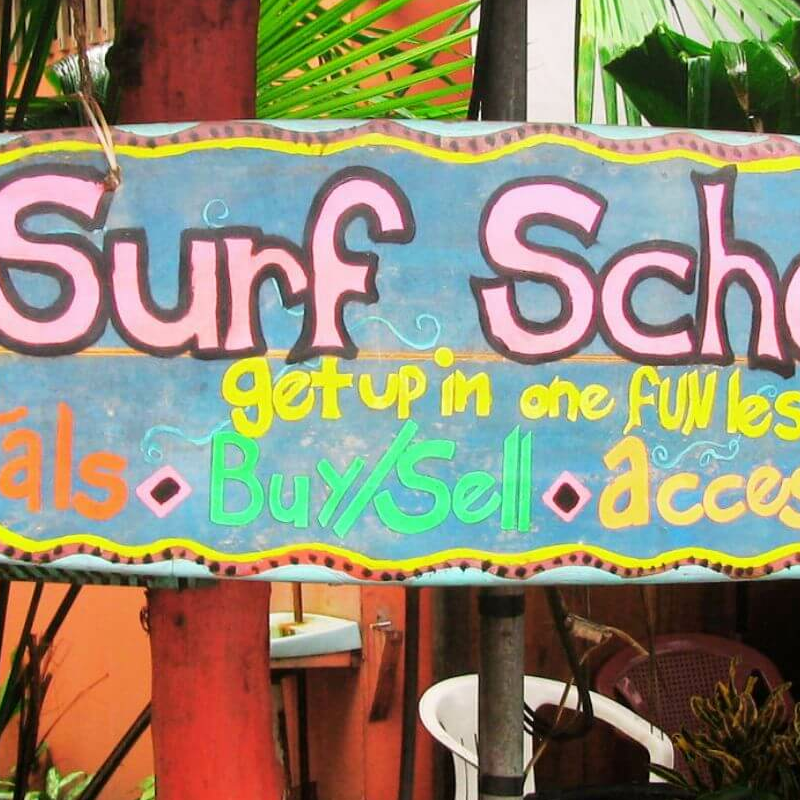 Surf Scho
get up in one FUN les
als Buy/Sell acces